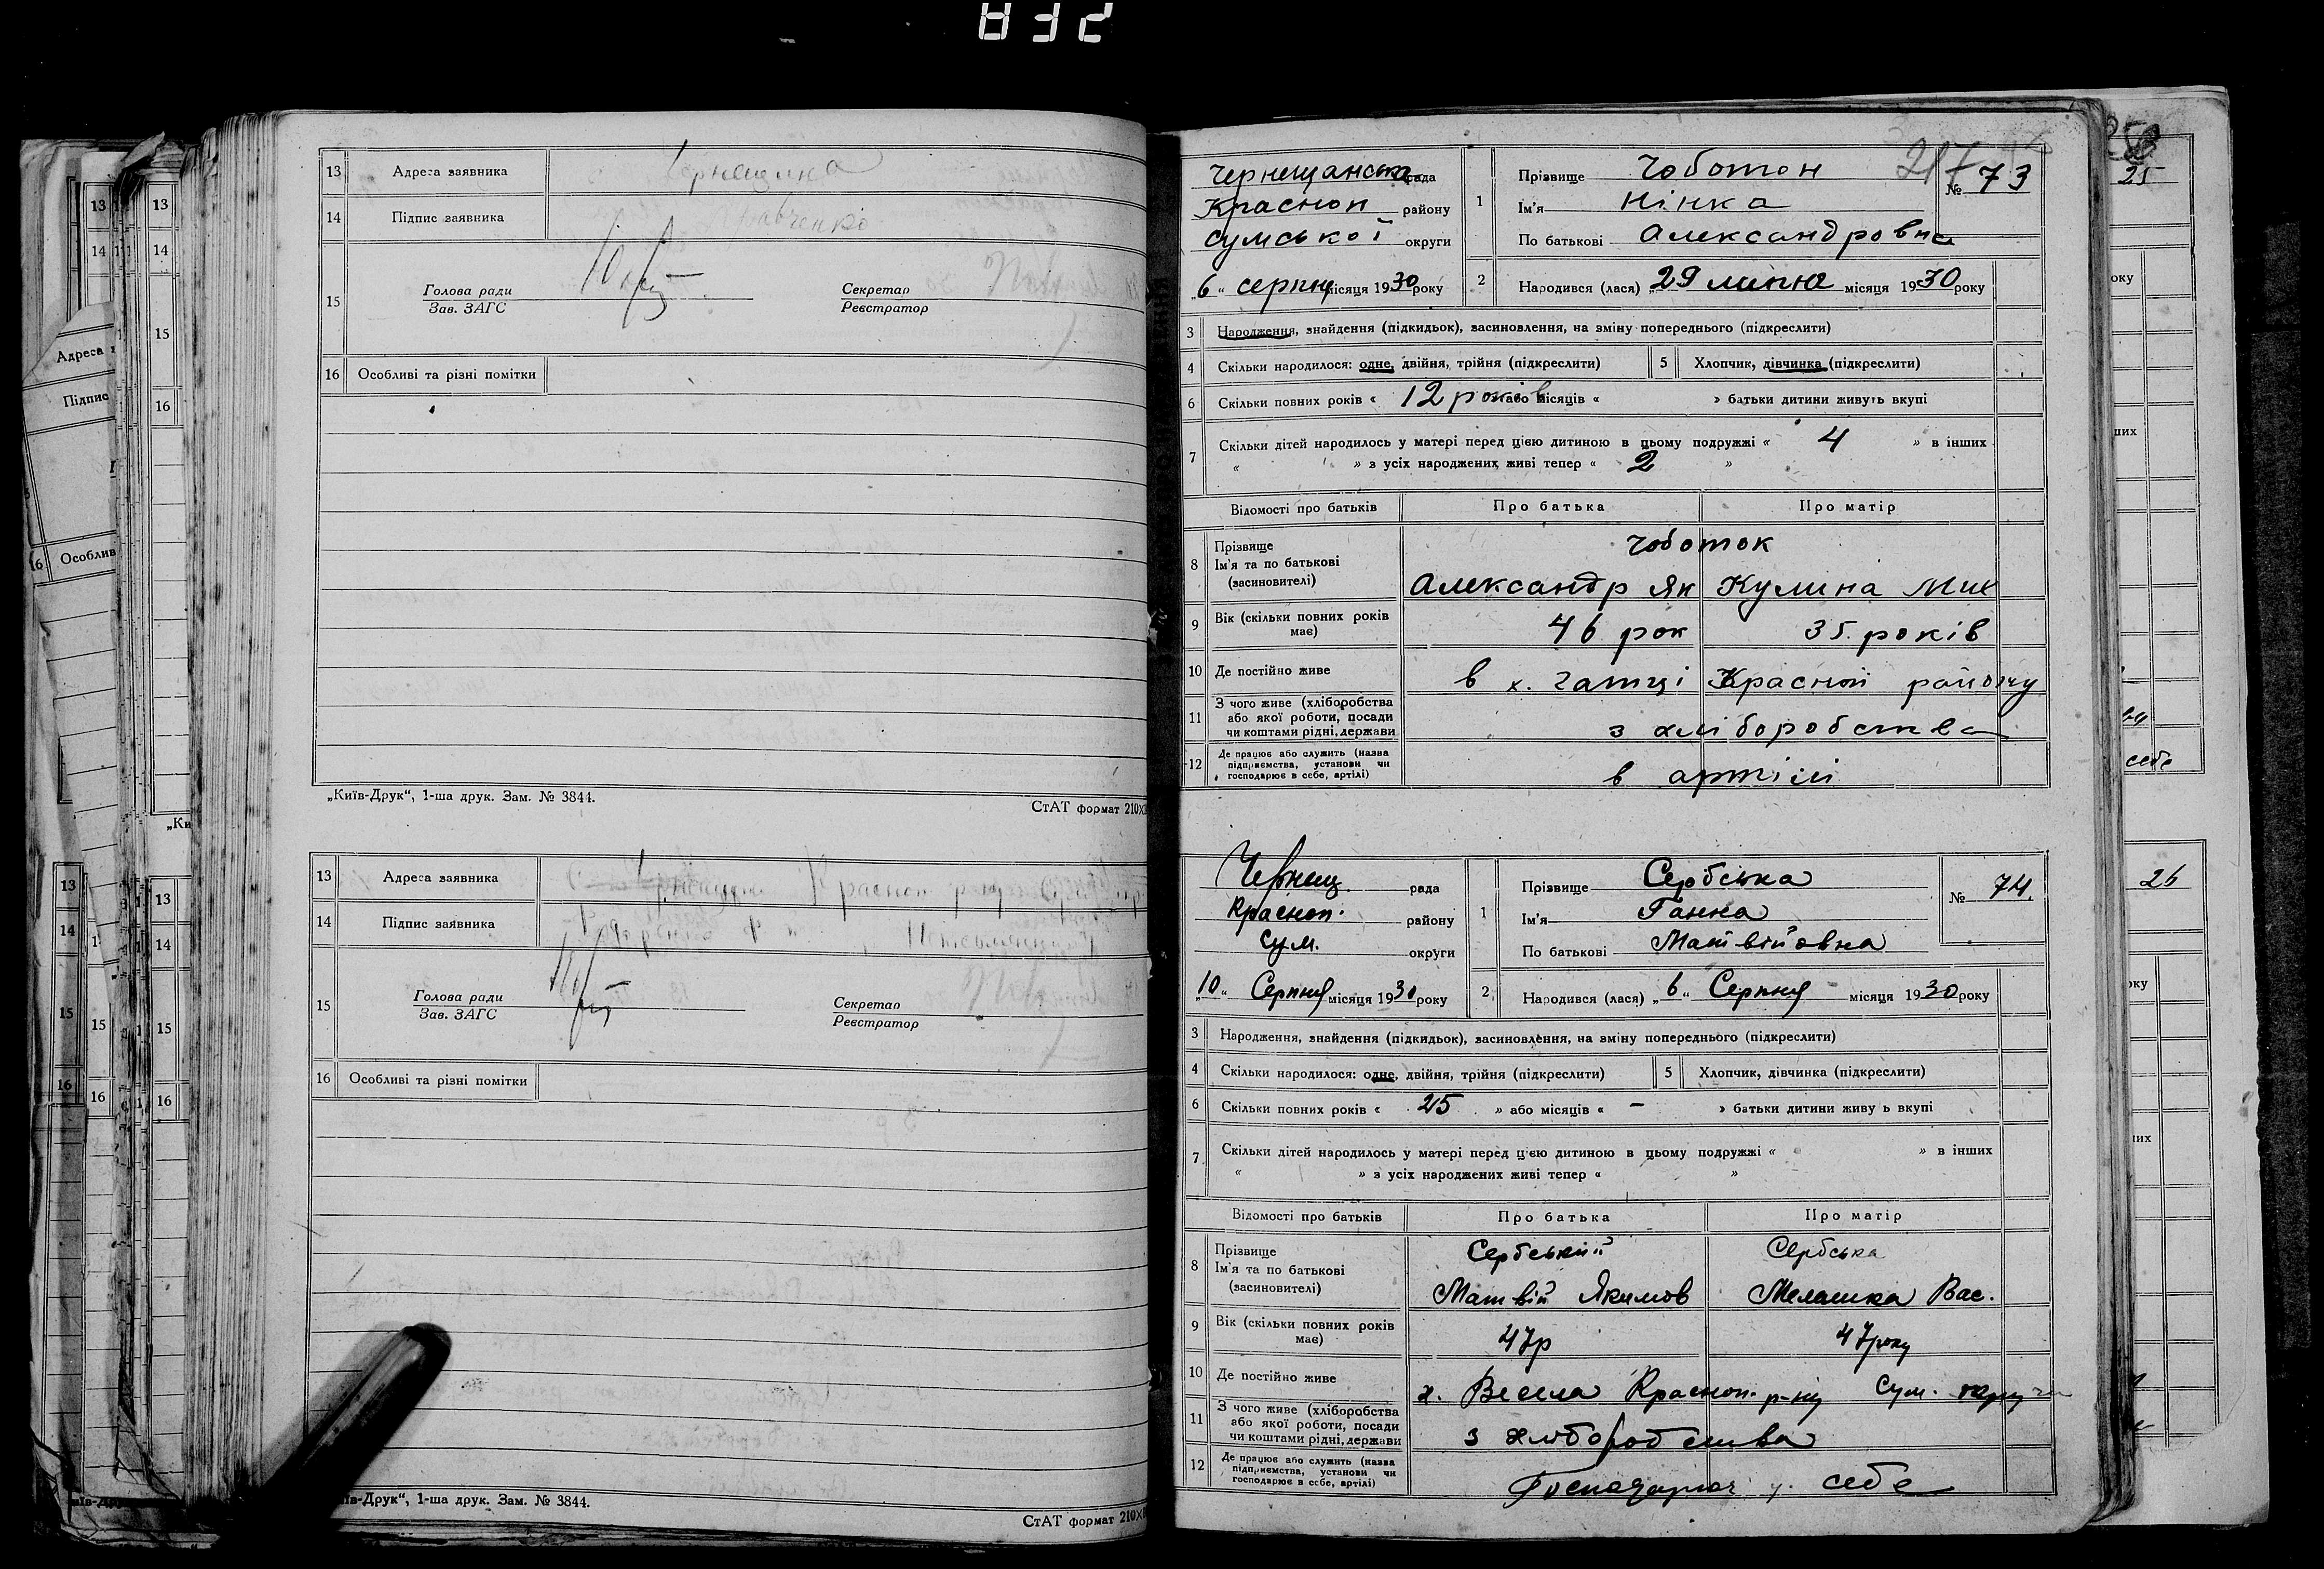 832
13 Адреса заявника Чернещина
14 Підпис заявника
15 Голова ради Секретар
Зав. ЗАГС Реєстратор
16 Особливі та різні помітки
„Київ-Друк“, 1-ша друк. Зам. № 3844. СтАТ формат 210×
13 Адреса заявника Красноп
14 Підпис заявника
15 Голова ради Секретар
Зав. ЗАГС Реєстратор
16 Особливі та різні помітки
їв-Друк“, 1-ша друк. Зам. № 3844.
СтАТ формат 210×
217
Чернещанська рада 1 Прізвище Чоботок № 73
Красноп району Ім'я Нінка
Сумської округи По батькові Александровна
„6“ серпня місяця 1930 року 2 Народився (лася) „29 липня місяця 1930 року
3 Народження, знайдення (підкидьок), засиновлення, на зміну попереднього (підкреслити)
4 Скільки народилося: одне, двійня, трійня (підкреслити) 5 Хлопчик, дівчинка (підкреслити)
6 Скільки повних років « 12 років або місяців « » батьки дитини живуть вкупі
7 Скільки дітей народилось у матері перед цією дитиною в цьому подружжі « 4 » в інших
« » з усіх народжених живі тепер « 2 »
Відомості про батьків Про батька Про матір
8 Прізвище Чоботок
Ім'я та по батькові
(засиновителі) Александр Як Кулина Мик
9 Вік (скільки повних років має) 46 рок 35 років
10 Де постійно живе в х. Гатці Красноп району
11 З чого живе (хліборобства
або якої роботи, посади з хліборобства
чи коштами рідні, держави
12 Де працює або служить (назва
підприємства, установи чи в артілі
господарює в себе, артілі)
Чернещ. рада 1 Прізвище Сербська № 74.
Красноп. району Ім'я Ганна
Сум. округи По батькові Матвійовна
„10“ Серпня місяця 1930 року 2 Народився (лася) „6“ Серпня місяця 1930 року
3 Народження, знайдення (підкидьок), засиновлення, на зміну попереднього (підкреслити)
4 Скільки народилося: одне, двійня, трійня (підкреслити) 5 Хлопчик, дівчинка (підкреслити)
6 Скільки повних років « 25 » або місяців « – » батьки дитини живу ь вкупі
7 Скільки дітей народилось у матері перед цією дитиною в цьому подружжі « » в інших
« » з усіх народжених живі тепер « »
Відомості про батьків Про батька Про матір
8 Прізвище Сербський Сербська
Ім'я та по батькові
(засиновителі) Матвій Якимов Мелашка Вас.
9 Вік (скільки повних років має) 47р 47 року
10 Де постійно живе х. Весела Красноп. р-ну Сум.
11 З чого живе (хліборобства
або якої роботи, посади з хліборобства
чи коштами рідні, держави
12 Де працює або служить (назва
підприємства, установи чи
господарює в себе, артілі) Господарює у себе
25
себе
26